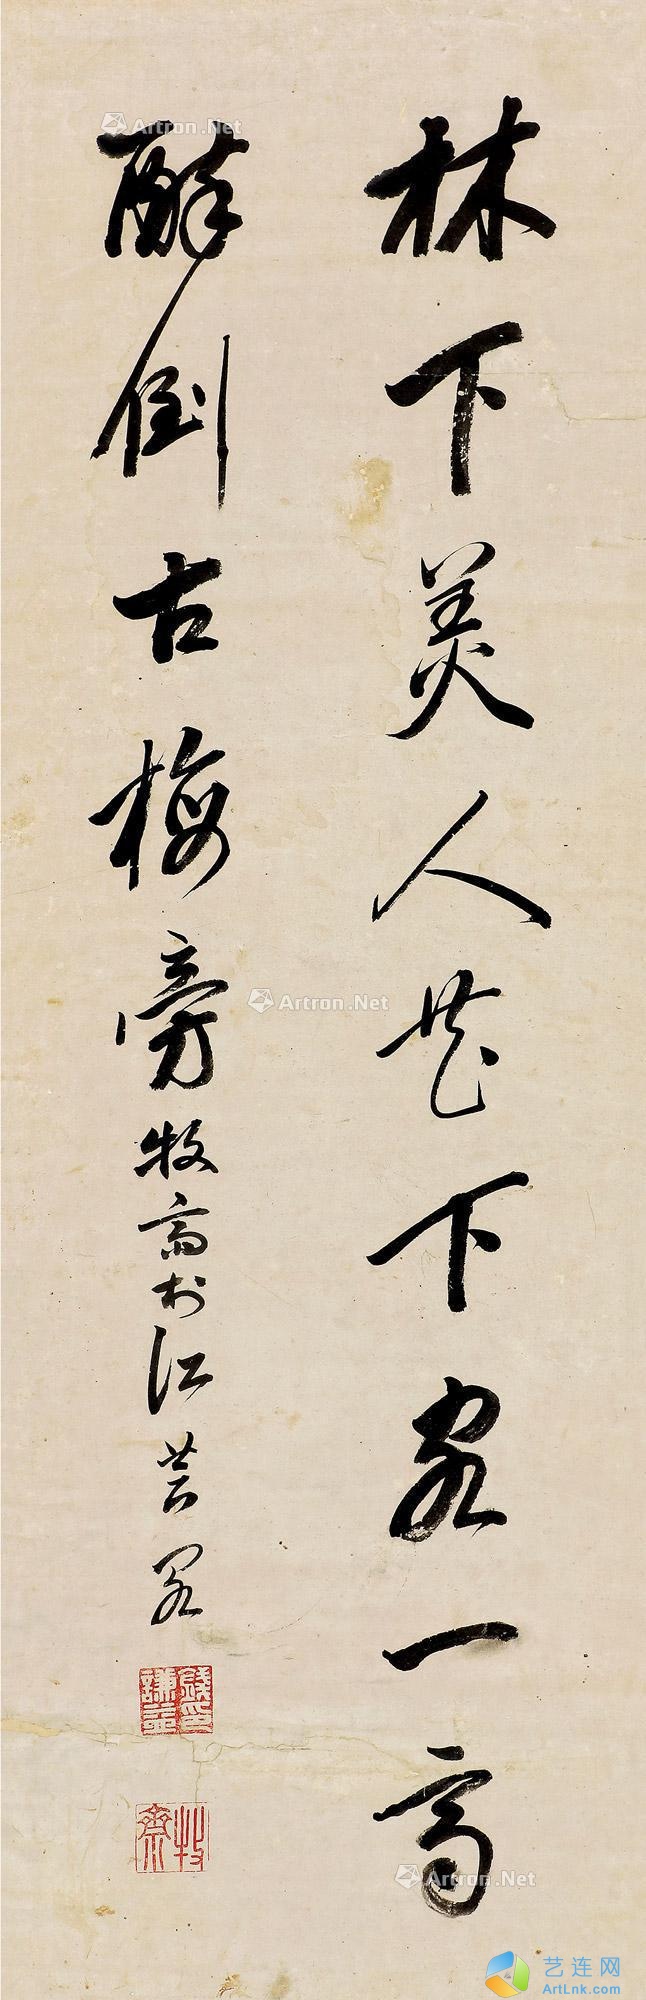 林下美人花下客一齊
醉倒古梅旁 牧齋於江
錢謙益印
牧齋
Artron.Net
Artron.Net
Artron.Net
艺连网
ArtLnk.com